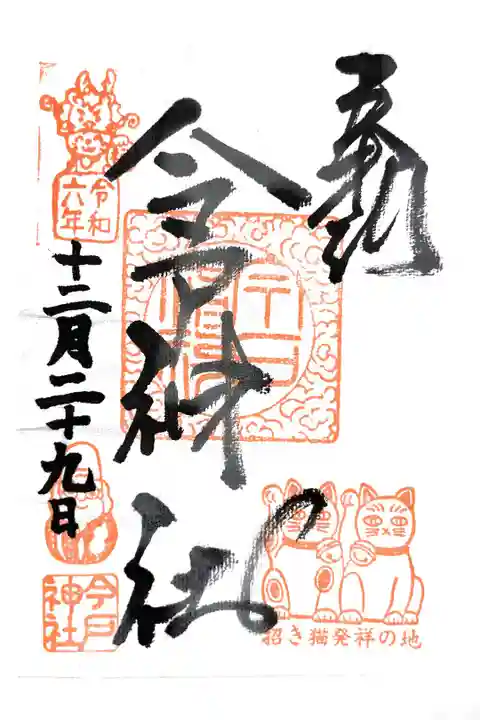 奉拝
今戸神社
令和
六年
十二月二十九日
今戸
神社
招き猫発祥の地